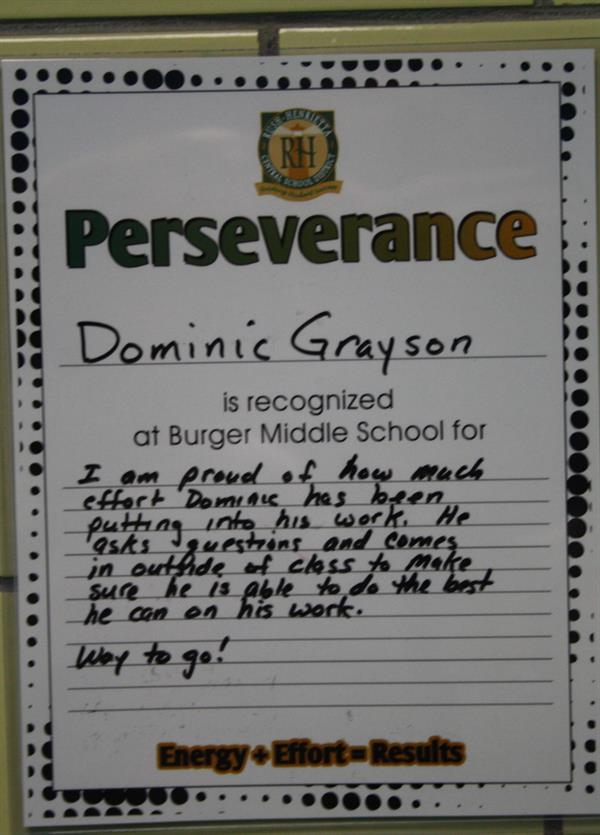 RUSH-HENRIETTA
RH
CENTRAL SCHOOL DISTRICT
Perseverance
Dominic Grayson
is recognized
at Burger Middle School for
I am proud of how much
effort Dominic has been
putting into his work. He
asks questions and comes
in outside of class to make
sure he is able to do the best
he can on his work.
Way to go!
Energy + Effort = Results